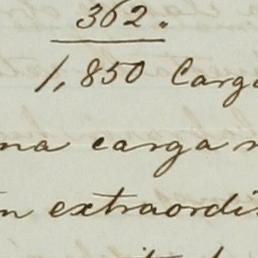 362.
1,850 Carg
na carga
n extraordi